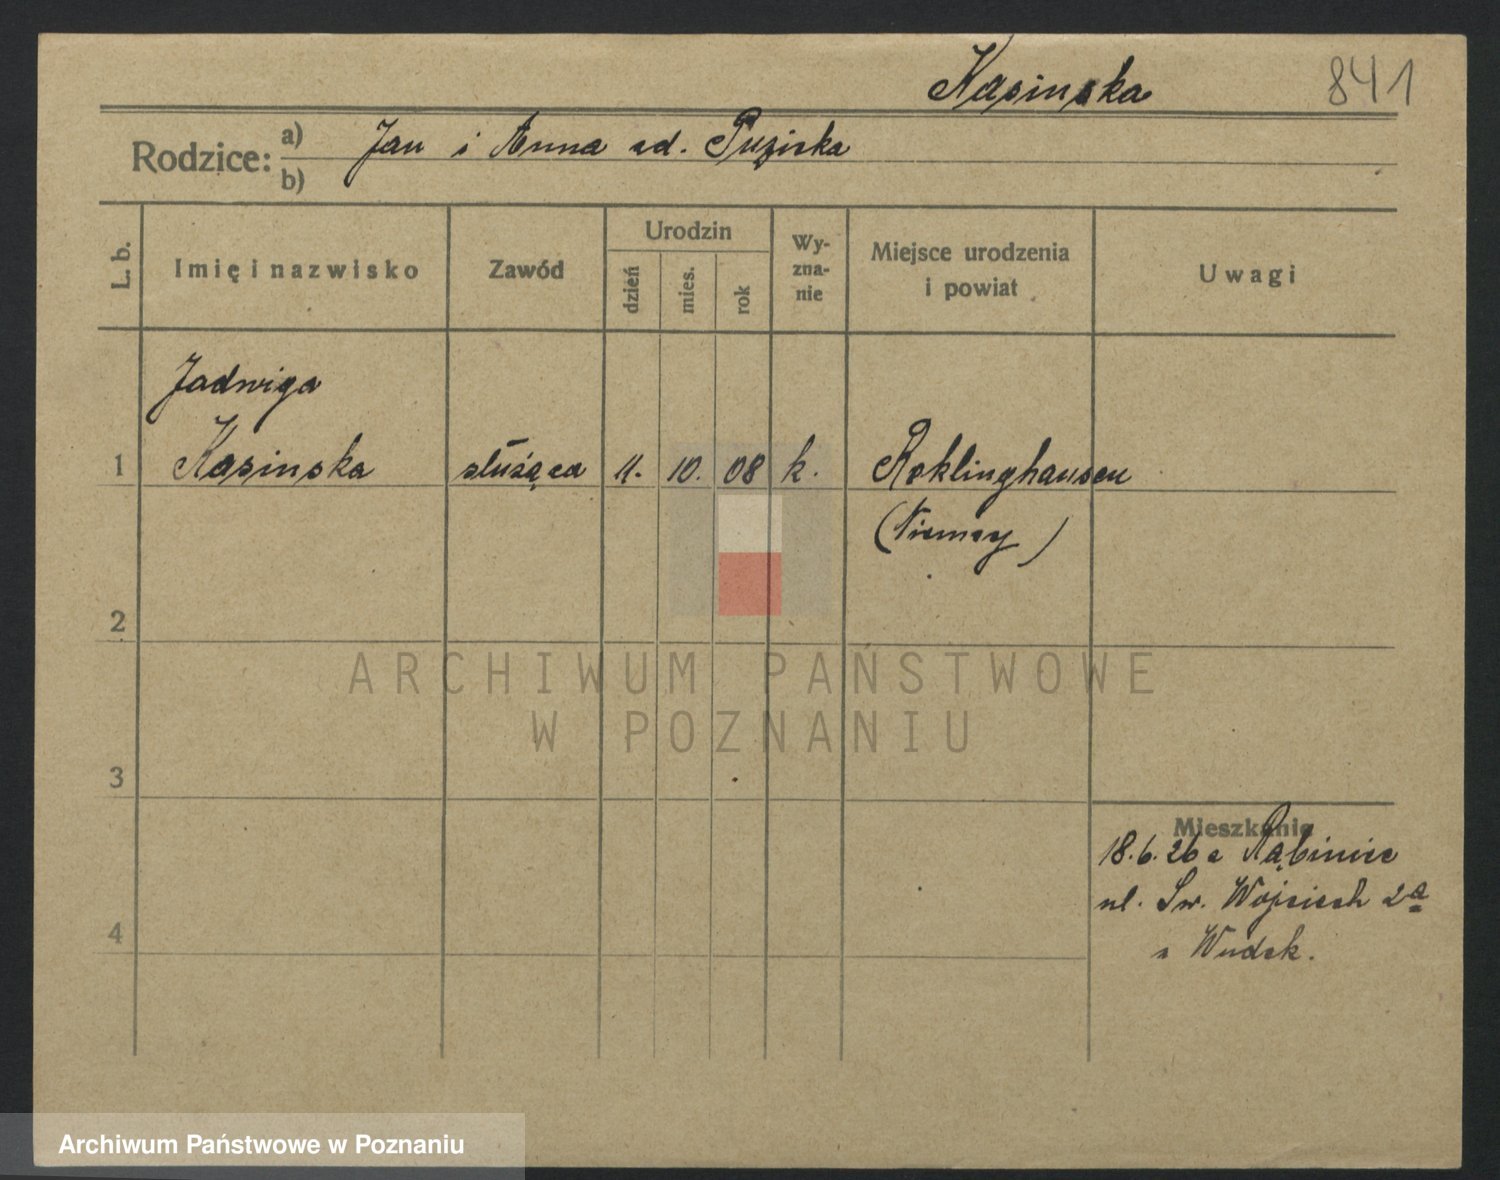 Kasinska
841
Rodzice: a) Jan i Anna
b)
L. b.
Imię i nazwisko
Zawód
Urodzin
dzień
mies.
rok
Wy-
zna-
nie
Miejsce urodzenia
i powiat
Uwagi
Jadwiga
1 Kasinska służąca 11. 10. 08 k. Reklinghausen
(Niemcy)
2
3
4
Mieszkanie
18.6.26
ul. Św. Wojciech 2a
ARCHIWUM PAŃSTWOWE
W POZNANIU
Archiwum Państwowe w Poznaniu